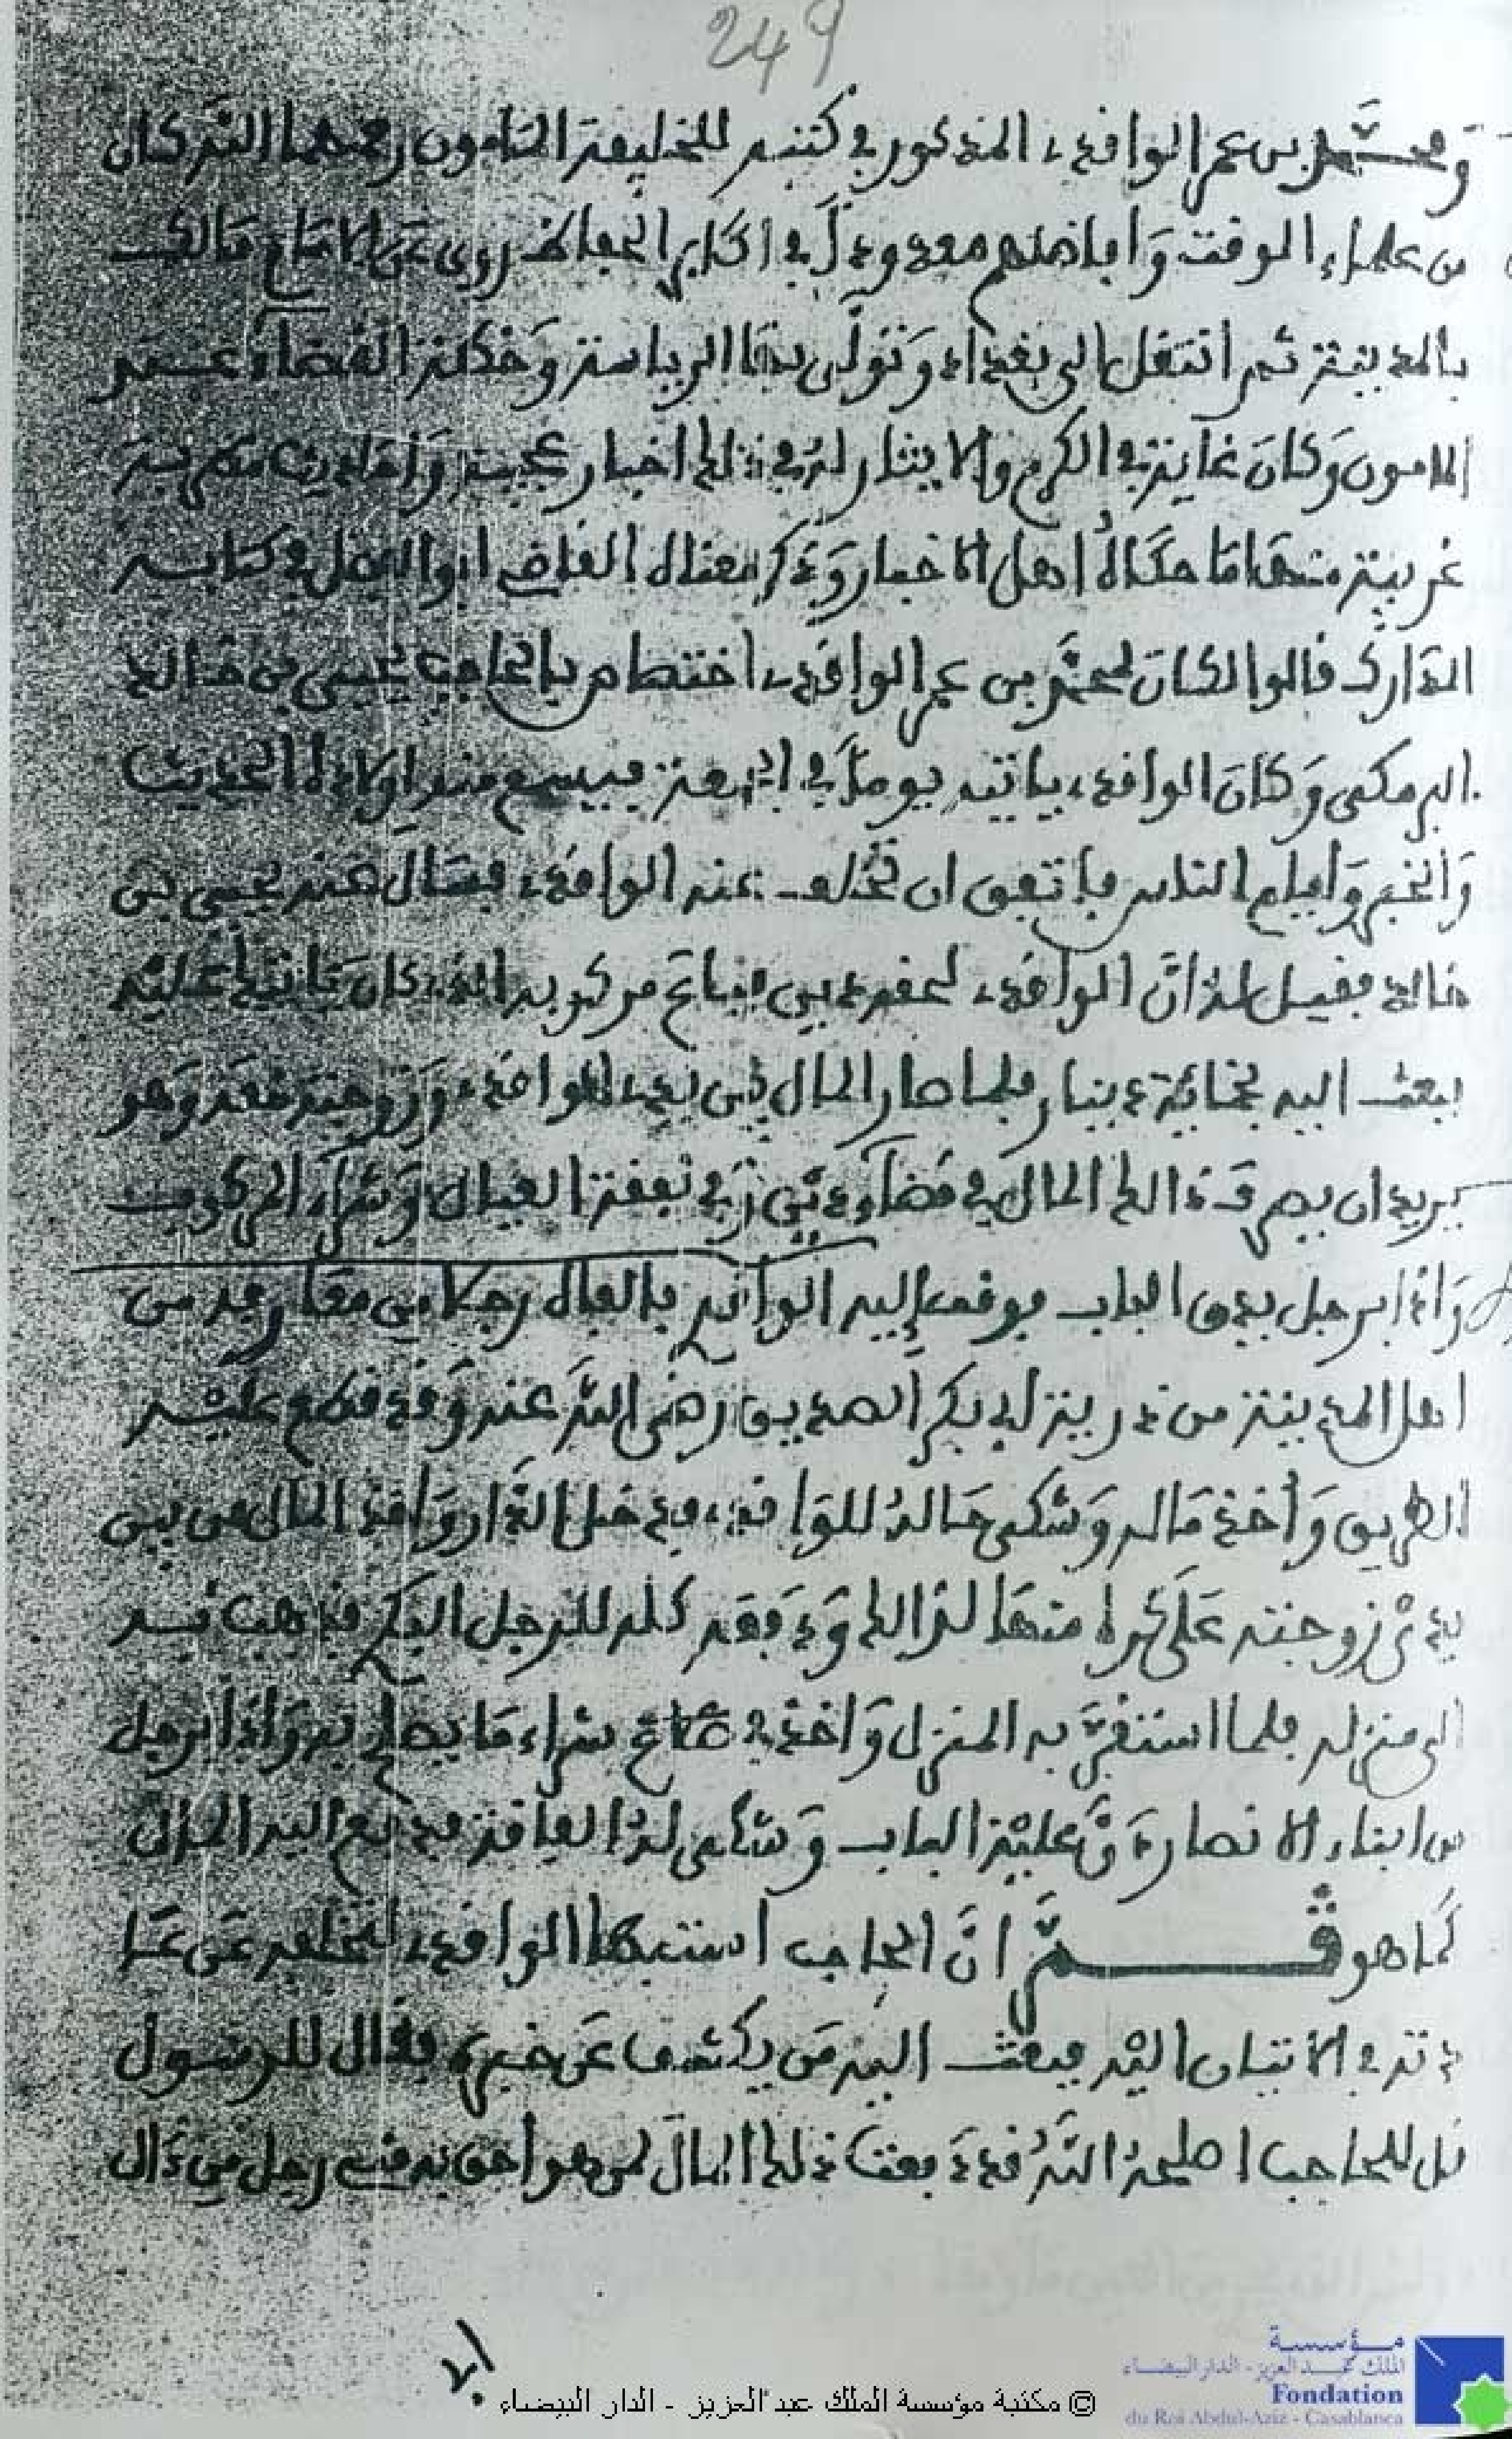 249
ومحمد بن عمر الواقدي المذكور في كتبه للخليفة المامون رحمهما الله كان
من علماء الوقت وافاضلهم معدود في اكابر الحفاظ روى عن الامام مالك
بالمدينة ثم انتقل الى بغداد وتولى بها الرياسة وخطة القضاء
المامون وكان غاية في الكرم والايثار له في ذلك اخبار عجيبة واحاديث
غريبة منها ما حكاه اهل الاخبار وذكر معناه القاضي ابو الفضل في كتابه
المدارك قالوا كان لمحمد بن عمر الواقدي اختصاص بالحاجب يحيى بن خالد
البرمكي وكان الواقدي ياتيه يوما في الجمعة فيسمع منه اولاده الحديث
والخبر وايام الناس فاتفق ان تخلف عنه الواقدي فسال عنه يحيى بن
خالد فقيل له ان الواقدي لحقه دين فباع مركوبه الذي كان ياتي عليه
فبعث اليه بمائة دينار فلما صار المال بين يدي الواقدي وزوجته معه وهو
يريد ان يصرف ذالك المال في قضاء دينه وفي نفقة العيال وشراء المركوب
واذا برجل يدق الباب فوقف اليه الواقدي بالباب رجلا من معارفه من
اهل المدينة من ذرية ابي بكر الصديق رضي الله عنه وقد قطع عليه
الطريق واخذ ماله وشكى حاله للواقدي فدخل الدار واخذ المال من بين
يدي زوجته على كره منها لذالك ودفعه كله للرجل البكري فذهب به
الى منزله فلما استقر به المنزل واخذ في شراء ما يصلح به واذا برجل
من ابناء الانصار دق عليه الباب وشكى له الفاقة فدفع اليه المال
كما هو ثم ان الحاجب استبطا الواقدي لتخلفه عن
عادته في الاتيان اليه فبعث اليه من يكشف عن خبره فقال للرسول
قل للحاجب اصلحه الله قد بعثت ذلك المال لمن هو احق به مني رجل من ءال
© مكتبة مؤسسة الملك عبد العزيز - الدار البيضاء
مؤسسة
الملك عبد العزيز - الدار البيضاء
Fondation
du Roi Abdul-Aziz - Casablanca